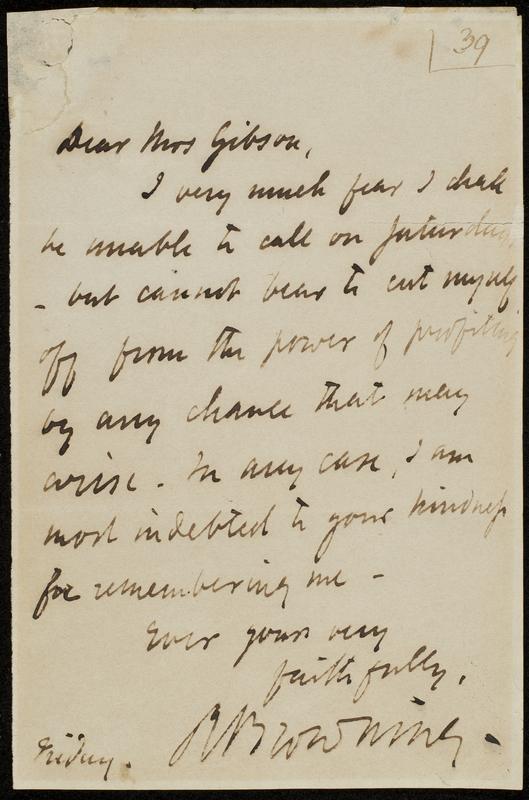 39
Dear Mrs Gibson,
I very much fear I shall
be unable to call on Saturday,
- but cannot bear to cut myself
off from the power of profiting
by any chance that may
arise. In any case, I am
most indebted to your kindness
for remembering me -
Ever yours very
faithfully,
R Browning.
Friday.